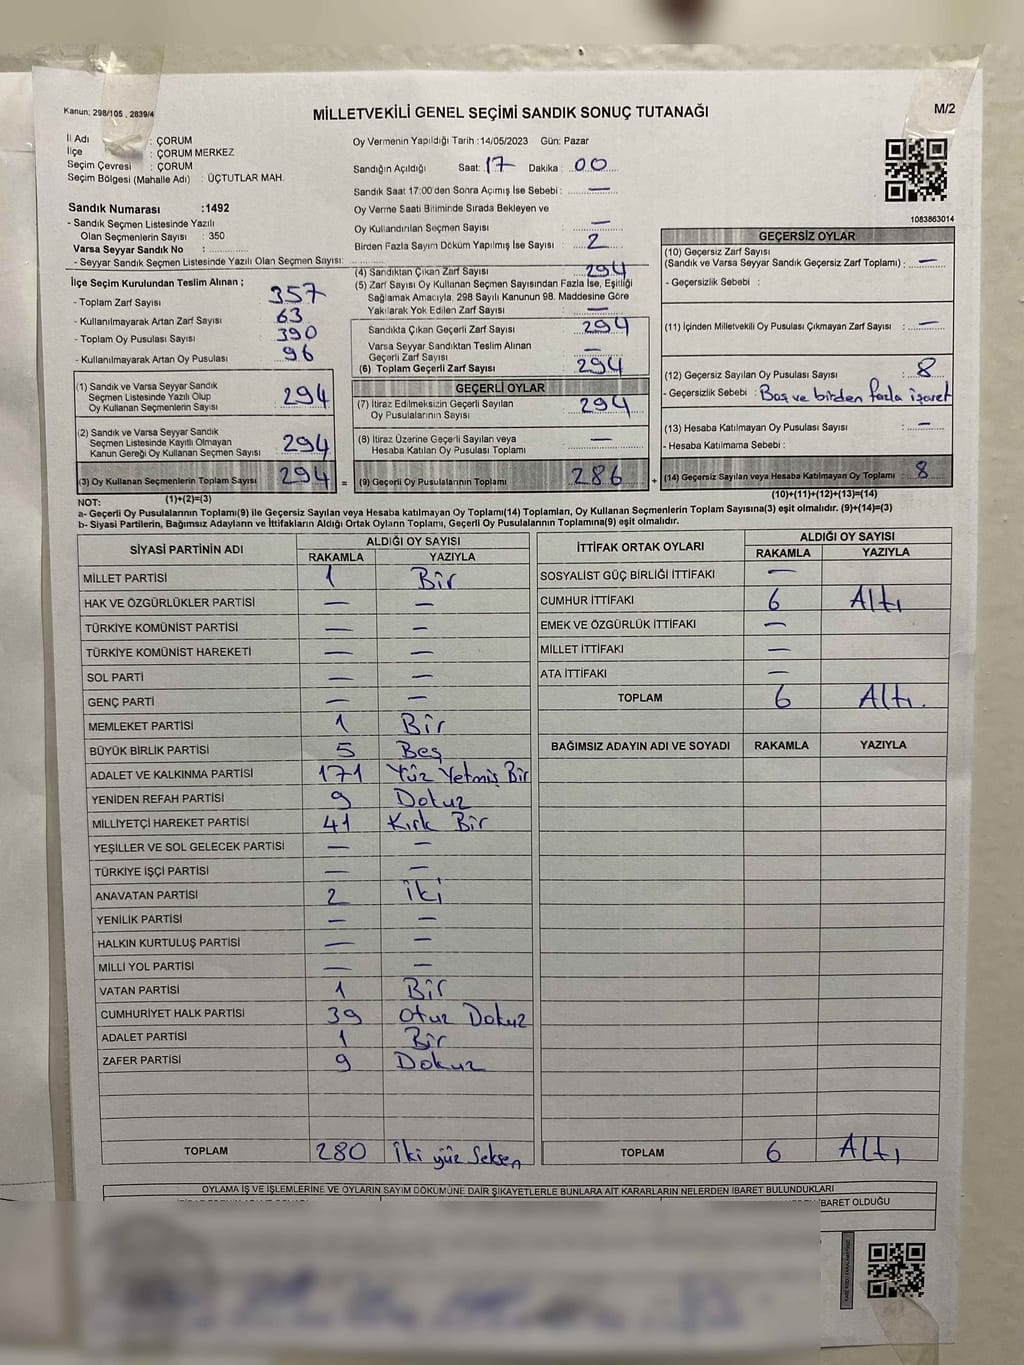 Kanun: 298/105 , 2839/4
MİLLETVEKİLİ GENEL SEÇİMİ SANDIK SONUÇ TUTANAĞI
M/2
İl Adı : ÇORUM
İlçe : ÇORUM MERKEZ
Seçim Çevresi : ÇORUM
Seçim Bölgesi (Mahalle Adı) : ÜÇTUTLAR MAH.
Oy Vermenin Yapıldığı Tarih :14/05/2023 Gün: Pazar
Sandığın Açıldığı Saat: 17 Dakika : 00
Sandık Saat 17:00'den Sonra Açımış İse Sebebi : —
Oy Verme Saati Bitiminde Sırada Bekleyen ve
Oy Kullandırılan Seçmen Sayısı : —
Birden Fazla Sayım Döküm Yapılmış İse Sayısı : 2
1083863014
Sandık Numarası :1492
- Sandık Seçmen Listesinde Yazılı
Olan Seçmenlerin Sayısı : 350
Varsa Seyyar Sandık No :
- Seyyar Sandık Seçmen Listesinde Yazılı Olan Seçmen Sayısı:
İlçe Seçim Kurulundan Teslim Alınan ;
- Toplam Zarf Sayısı 357
- Kullanılmayarak Artan Zarf Sayısı 63
- Toplam Oy Pusulası Sayısı 390
- Kullanılmayarak Artan Oy Pusulası 96
(1) Sandık ve Varsa Seyyar Sandık
Seçmen Listesinde Yazılı Olup
Oy Kullanan Seçmenlerin Sayısı 294
(2) Sandık ve Varsa Seyyar Sandık
Seçmen Listesinde Kayıtlı Olmayan
Kanun Gereği Oy Kullanan Seçmen Sayısı 294
(3) Oy Kullanan Seçmenlerin Toplam Sayısı 294 =
(1)+(2)=(3)
(4) Sandıktan Çıkan Zarf Sayısı 294
(5) Zarf Sayısı Oy Kullanan Seçmen Sayısından Fazla İse, Eşitliği
Sağlamak Amacıyla, 298 Sayılı Kanunun 98. Maddesine Göre
Yakılarak Yok Edilen Zarf Sayısı : —
Sandıkta Çıkan Geçerli Zarf Sayısı : 294
Varsa Seyyar Sandıktan Teslim Alınan
Geçerli Zarf Sayısı : —
(6) Toplam Geçerli Zarf Sayısı : 294
GEÇERLİ OYLAR
(7) İtiraz Edilmeksizin Geçerli Sayılan
Oy Pusulalarının Sayısı : 294
(8) İtiraz Üzerine Geçerli Sayılan veya
Hesaba Katılan Oy Pusulası Toplamı : —
(9) Geçerli Oy Pusulalarının Toplamı 286 +
GEÇERSİZ OYLAR
(10) Geçersiz Zarf Sayısı
(Sandık ve Varsa Seyyar Sandık Geçersiz Zarf Toplamı) : —
- Geçersizlik Sebebi :
(11) İçinden Milletvekili Oy Pusulası Çıkmayan Zarf Sayısı : —
(12) Geçersiz Sayılan Oy Pusulası Sayısı : 8
- Geçersizlik Sebebi : Boş ve birden fazla işaret
(13) Hesaba Katılmayan Oy Pusulası Sayısı : —
- Hesaba Katılmama Sebebi :
(14) Geçersiz Sayılan veya Hesaba Katılmayan Oy Toplamı : 8
(10)+(11)+(12)+(13)=(14)
NOT:
a- Geçerli Oy Pusulasının Toplamı(9) ile Geçersiz Sayılan veya Hesaba katılmayan Oy Toplamı(14) Toplamları, Oy Kullanan Seçmenlerin Toplam Sayısına(3) eşit olmalıdır. (9)+(14)=(3)
b- Siyasi Partilerin, Bağımsız Adayların ve İttifakların Aldığı Ortak Oyların Toplamı, Geçerli Oy Pusulasının Toplamına(9) eşit olmalıdır.
SİYASİ PARTİNİN ADI ALDIĞI OY SAYISI
RAKAMLA YAZIYLA
MİLLET PARTİSİ 1 Bir
HAK VE ÖZGÜRLÜKLER PARTİSİ — —
TÜRKİYE KOMÜNİST PARTİSİ — —
TÜRKİYE KOMÜNİST HAREKETİ — —
SOL PARTİ — —
GENÇ PARTİ — —
MEMLEKET PARTİSİ 1 Bir
BÜYÜK BİRLİK PARTİSİ 5 Beş
ADALET VE KALKINMA PARTİSİ 171 Yüz Yetmiş Bir
YENİDEN REFAH PARTİSİ 9 Dokuz
MİLLİYETÇİ HAREKET PARTİSİ 41 Kırk Bir
YEŞİLLER VE SOL GELECEK PARTİSİ — —
TÜRKİYE İŞÇİ PARTİSİ — —
ANAVATAN PARTİSİ 2 iki
YENİLİK PARTİSİ — —
HALKIN KURTULUŞ PARTİSİ — —
MİLLİ YOL PARTİSİ — —
VATAN PARTİSİ 1 Bir
CUMHURİYET HALK PARTİSİ 39 Otuz Dokuz
ADALET PARTİSİ 1 Bir
ZAFER PARTİSİ 9 Dokuz
TOPLAM 280 İki yüz Seksen
İTTİFAK ORTAK OYLARI ALDIĞI OY SAYISI
RAKAMLA YAZIYLA
SOSYALİST GÜÇ BİRLİĞİ İTTİFAKI —
CUMHUR İTTİFAKI 6 Altı
EMEK VE ÖZGÜRLÜK İTTİFAKI —
MİLLET İTTİFAKI —
ATA İTTİFAKI —
TOPLAM 6 Altı.
BAĞIMSIZ ADAYIN ADI VE SOYADI RAKAMLA YAZIYLA
TOPLAM 6 Altı
OYLAMA İŞ VE İŞLEMLERİNE VE OYLARIN SAYIM DÖKÜMÜNE DAİR ŞİKAYETLERLE BUNLARA AİT KARARLARIN NELERDEN İBARET BULUNDUKLARI
İBARET OLDUĞU